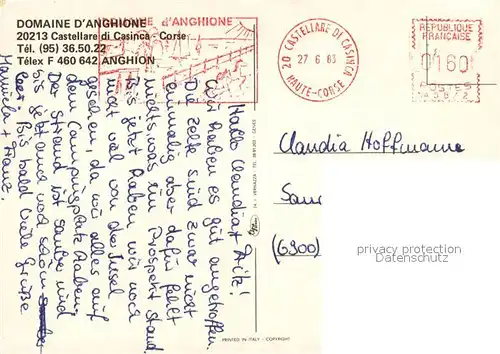 DOMAINE D'ANGHIONE
20213 Castellare di Casinca - Corse
Tél. (95) 36.50.22
Télex F 460 642 ANGHION
d'ANGHIONE
20 CASTELLARE DI CASINCA
27 6 83
HAUTE-CORSE
REPUBLIQUE
FRANCAISE
0160
POSTES
Hallo Claudia + Fritz!
Wir haben es gut angetroffen.
Die Zelte sind zwar nicht
einmalig aber dafür fehlt
nichts was im Prospekt stand.
Bis jetzt haben wir noch
nicht viel von der Insel
gesehen, da wir alles auf
dem Campingplatz haben.
Der Strand ist sauber und
bis jetzt auch noch schön
leer. Bis bald viele Grüße
Manuela + Franz.
Claudia Hoffmanne
(6900)
privacy protection
PRINTED IN ITALY - COPYRIGHT